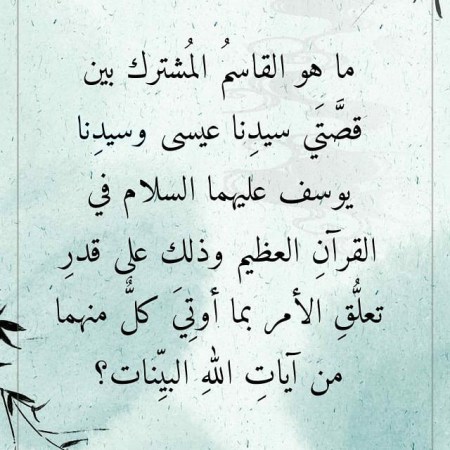 ما هو القاسمُ المُشترك بين
قصَّتَي سيدِنا عيسى وسيدِنا
يوسف عليهما السلام في
القرآنِ العظيم وذلك على قدرِ
تعلُّقِ الأمر بما أوتِيَ كلٌّ منهما
من آياتِ اللهِ البيِّنات؟